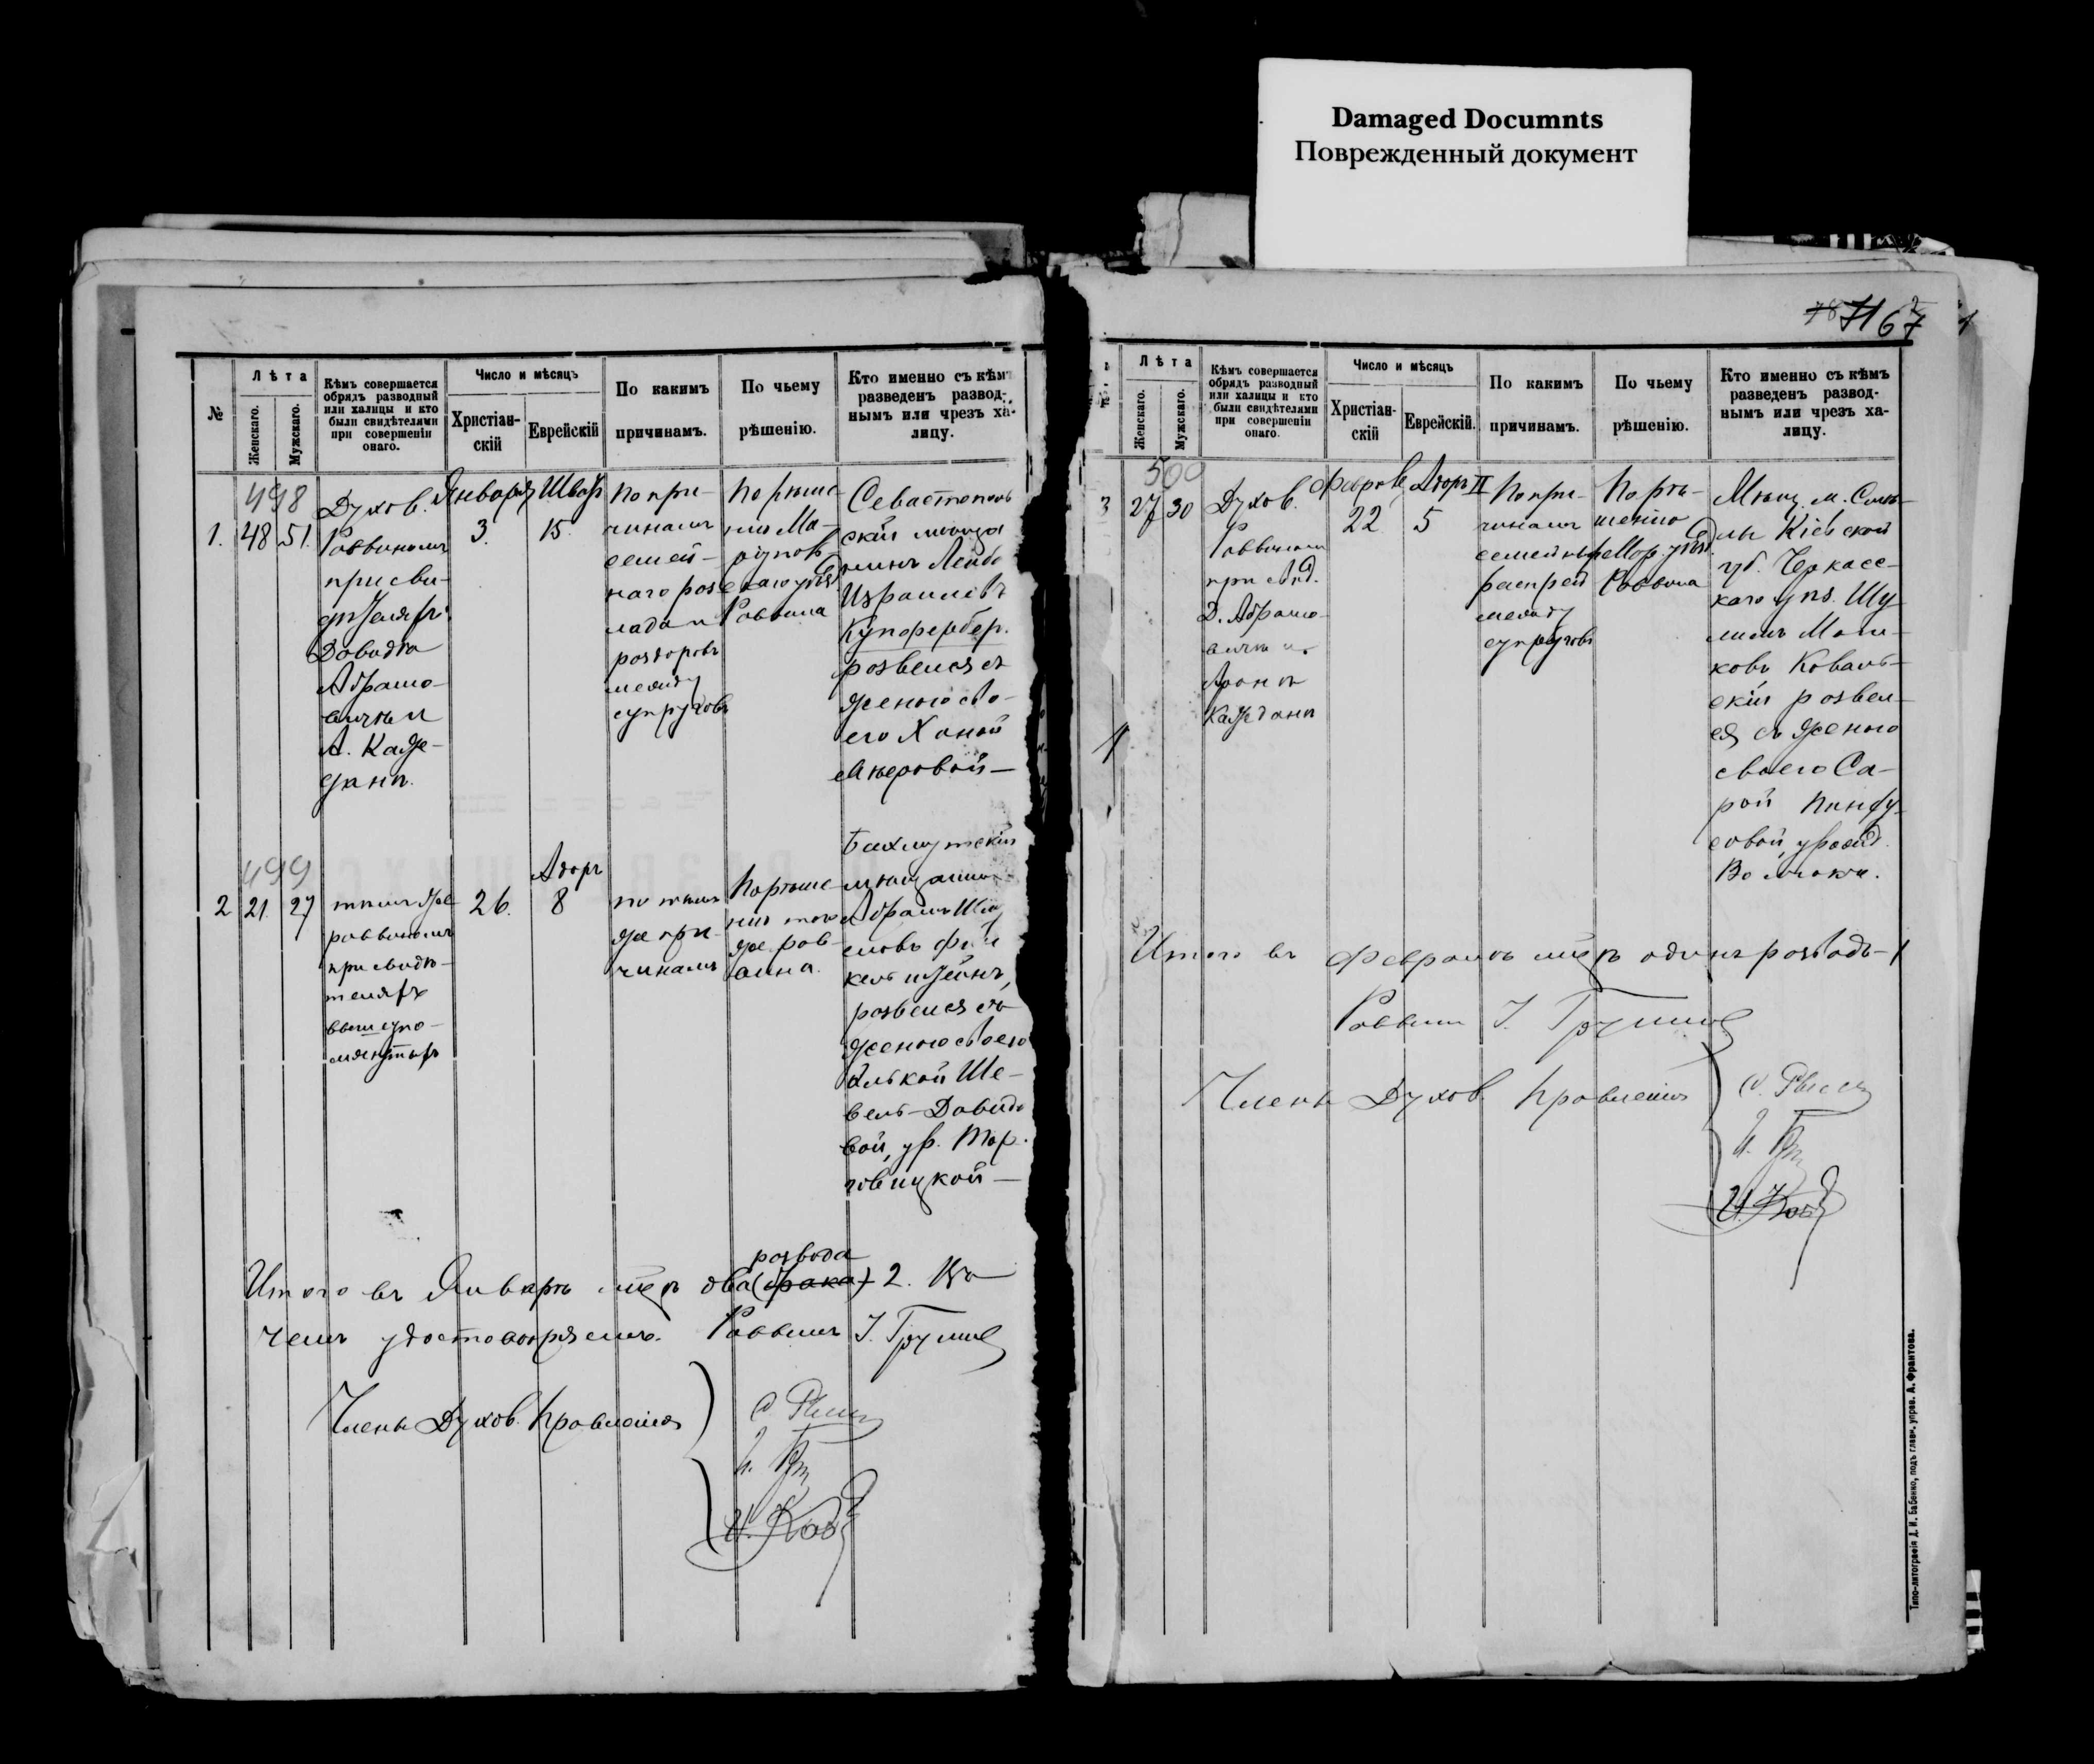 Damaged Documnts
Поврежденный документ
71 67
№
Лѣта
Женскаго.
Мужскаго.
Кѣмъ совершается
обрядъ разводный
или халицы и кто
были свидѣтелями
при совершеніи
онаго.
Число и мѣсяцъ
Христіан-
скій
Еврейскій
По какимъ
причинамъ.
По чьему
рѣшенію.
Кто именно съ кѣмъ
разведенъ развод-
нымъ или чрезъ ха-
лицу.
498
1.
48
51.
Духов.
Раввиномъ
при сви-
дѣтеляхъ
Давидѣ
Абрамо-
вичѣ и
А. Каже-
данѣ.
Января
3.
Шватъ
15.
По при-
чинамъ
семей-
наго раз
лада и
раздоровъ
между
супруговъ
По рѣше-
нію Ма-
ріупольскаго уѣзд.
Раввина
Севастополь
скій мѣща
нинъ Лейба
Израилевъ
Купферберг.
развелся съ
женою сво-
ею Ханой
Мееровой —
499
2
21.
27
тѣмъ же
раввиномъ
при свидѣ-
теляхъ
вышеупо-
мянутыхъ
26.
Адаръ
8
по тѣмъ
же при-
чинамъ
По рѣше-
нію того
же рав-
вина.
Бахмутскій
мѣщанинъ
Абрамъ
кельштейнъ,
развелся съ
женою своею
Ше-
вель-Давидо
вой, ур. Тор-
говицкой —
развода
Итого въ Январѣ м-цѣ два (брака) 2. Въ
чемъ удостовѣряемъ. Раввинъ
Члены Духов. Правленія
Лѣта
Женскаго.
Мужскаго.
Кѣмъ совершается
обрядъ разводный
или халицы и кто
были свидѣтелями
при совершеніи
онаго.
Число и мѣсяцъ
Христіан-
скій
Еврейскій.
По какимъ
причинамъ.
По чьему
рѣшенію.
Кто именно съ кѣмъ
разведенъ развод-
нымъ или чрезъ ха-
лицу.
500
3
27
30
Духов.
Раввиномъ
при свид.
Д. Абрамо-
вичѣ и
Аронѣ
Кажданѣ
Февраль
22
Адаръ II
5
По при-
чинамъ
семейныхъ
распрей
между
супруговъ
По рѣ-
шенію
Мар. уѣзд.
Раввина
Мѣщ. м. Смѣ-
лы Кіевской
губ. Черкасс-
каго уѣз. Шу
лимъ
ковъ Коваль-
скій развел-
ся съ женою
своею Са-
рой Пинху-
совой, урожд.
Итого въ Февралѣ м-цѣ одинъ разводъ-1
Раввинъ
Члены Духов. Правленія
Типо-литографія Д. И. Бабенко, подъ главн. управ. А. Франтова.